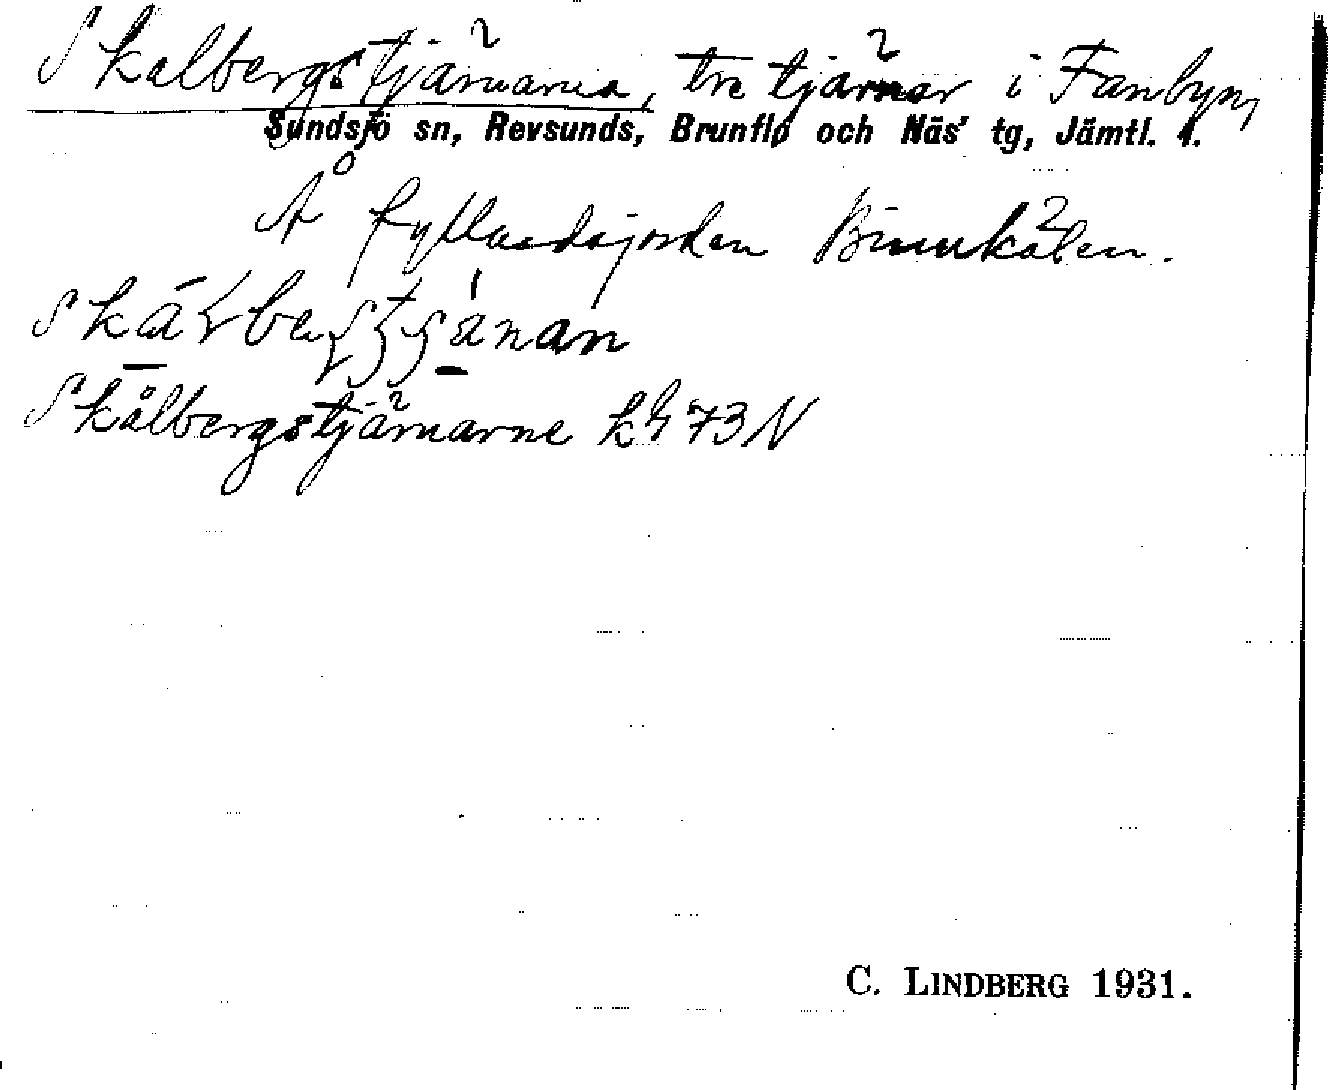 Skalbergstjärnarna, tre tjärnar i Fanbyn,
Sundsjö sn, Revsunds, Brunflo och Näs' tg, Jämtl. l.
Å fyllnadsjorden
Skålbergstjärnarne kh 73 N
C. LINDBERG 1931.